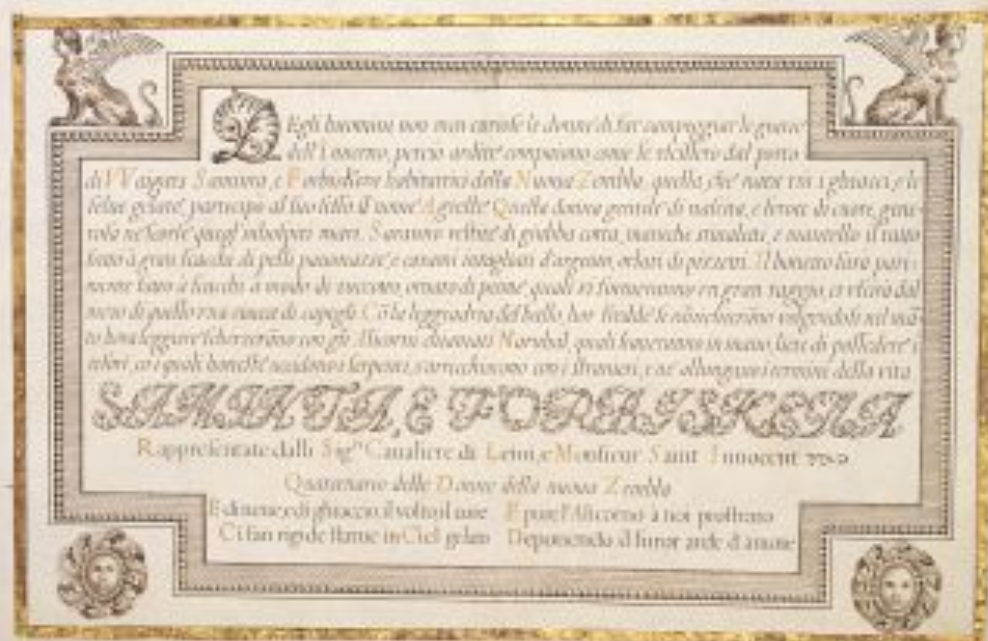 Degli huomini non men curiose le donne di far campeggiar le guerre
dell'Inverno, perciò ardite compaiono come se uscissero dal porto
di VVaigats Samiuta, e Forbiskena habitatrici della Nuova Zembla, quella che nata tra i ghiacci, e le
selve gelate, partecipò al suo lido il nome Questa donna gentile di nascita, e feroce di cuore, gene
rosa ne scorse quegl' mari. Saranno vestite di giubba corta, maniche stivalate, e mantello il tutto
fatto à gran scacchi di pelli pavonazze, e intagliati d'argento, orlati di pezzetti. Il bonetto sarà pari
mente fatto à scacchi à modo di zuccotto, ornato di penne, quali si formeranno in gran raggio, et uscirà dal
mezo di quello una di capegli. Cō la leggiadria del ballo, hor volgendosi nel mā
to hora leggiere scherzerāno con gli Alicorni chiamati Narubal, quali in mano, liete di possedere i
tesori, co i quali uccidono i serpenti, s'arrichiscono con i stranieri, e ne allungano i termini della vita
SAMIUTA, E FORBISKENA
Rappresentate dalli Sig.ri Cavaliere di Leini, e Monsieur Saint Innocent
Quaternario delle Donne della nuova Zembla
E di neve, e di ghiaccio il volto, il core E pure l'Alicorno à noi prostrato
Ci fan rigide statue in Ciel gelato Deponendo il furor arde d'amore